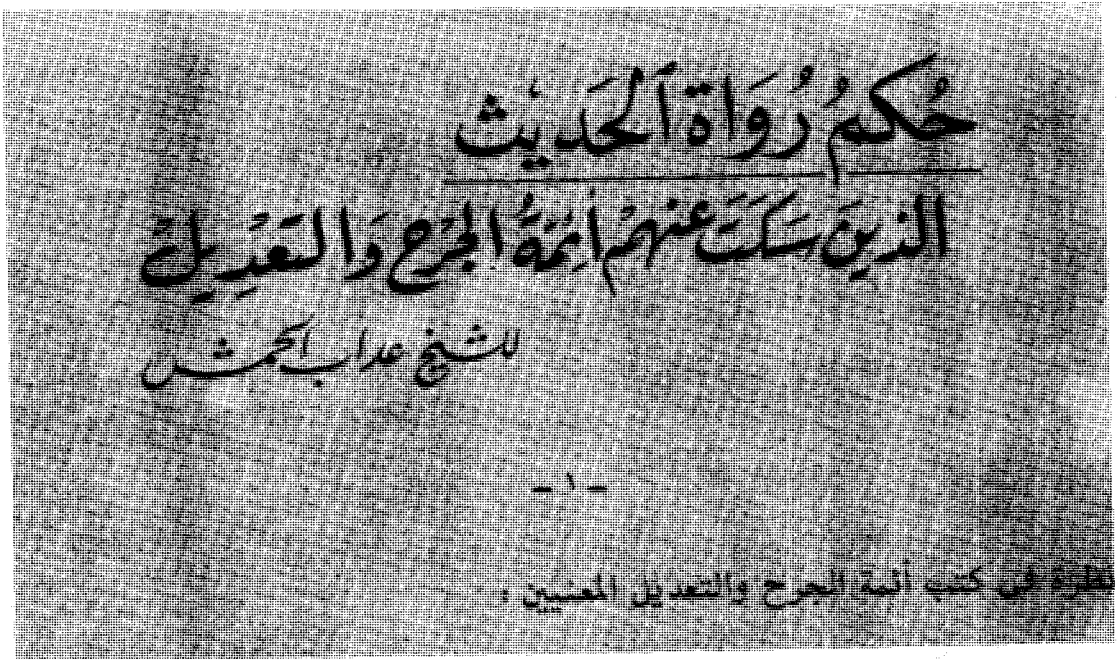 حُكمُ رُوَاة الحَديث
الذينَ سَكَتَ عنهمْ أئِمّةُ الجَرْح وَالتعْدِيل
للشيخ عداب الحمش
- ١ -
نظرة في كتب أئمة الجرح والتعديل المعنيين :